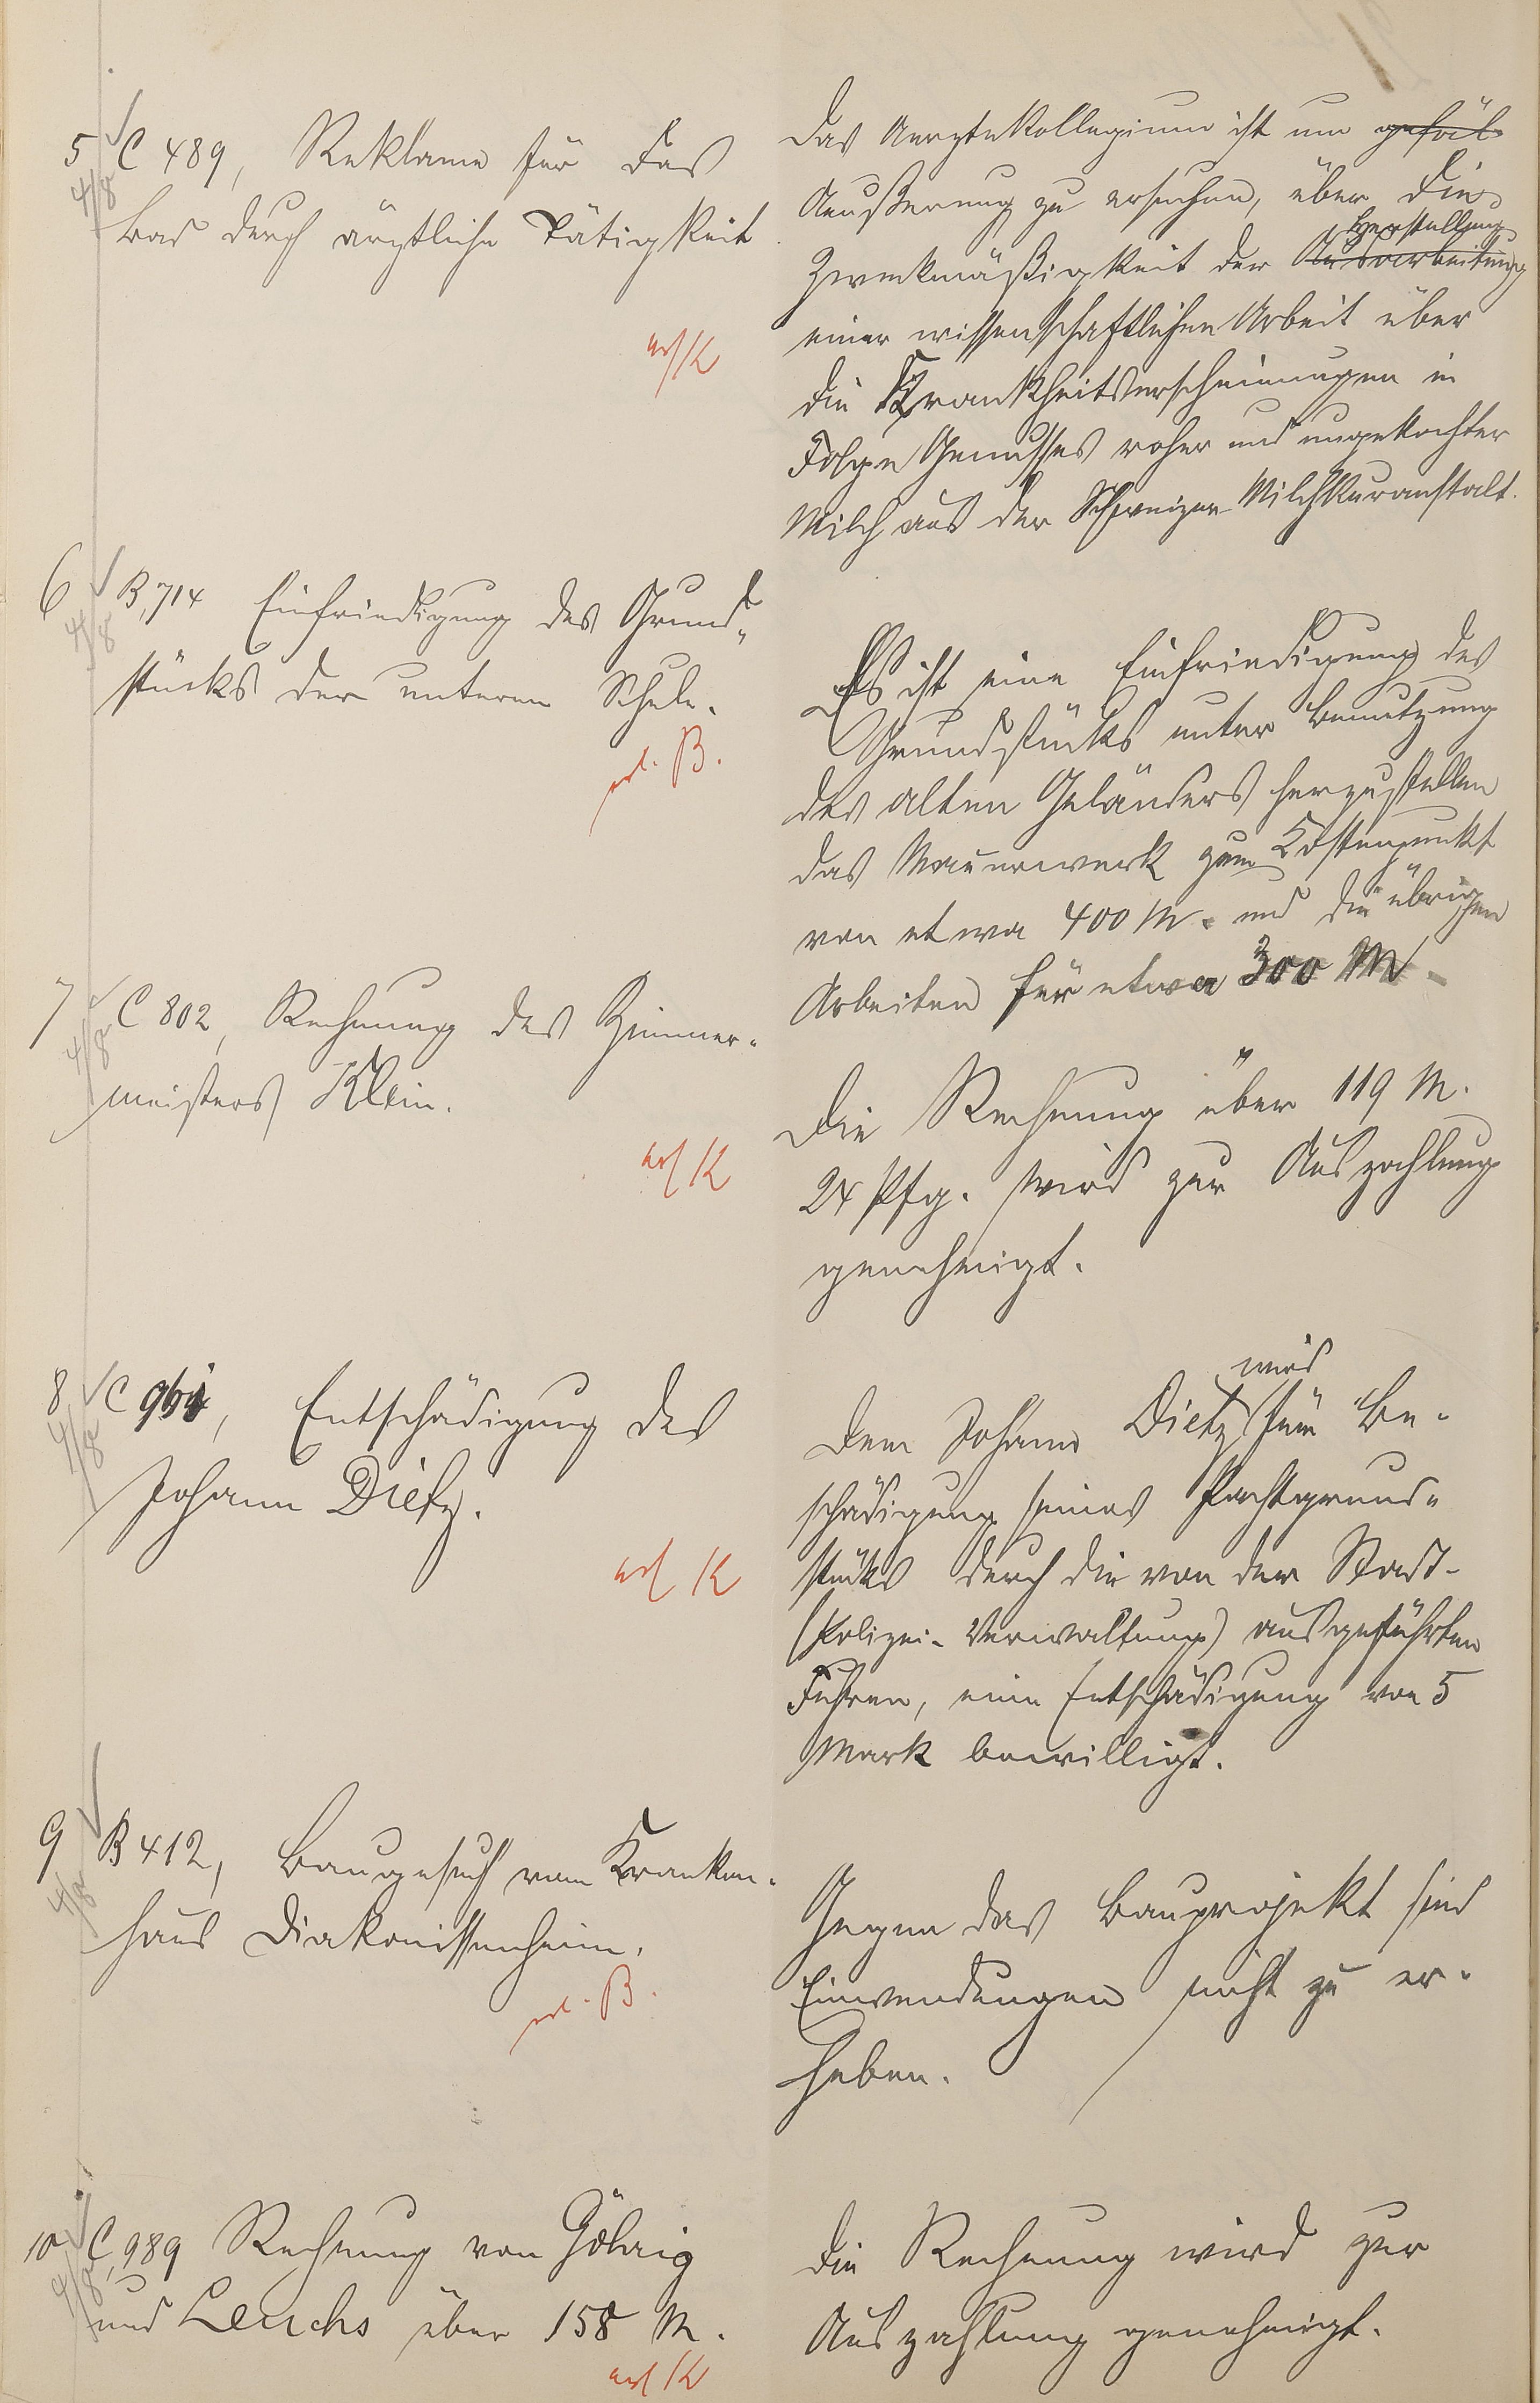 5 C 489, Reklame für das
4/8
Bad durch ärztliche Tätigkeit
erl K
Das Aerztekollegium ist um gefäl
Aeußerung zu ersuchen, über die
Herstellung
Zweckmäßigkeit der Ausarbeitung
einer wissenschaftlichen Arbeit über
die Krankheitserscheinungen in
Folge Genusses roher und ungekochter
Milch aus der Schweizer Milchkuranstalt.
6 B, 714 Einfriedigung des Grund„
4/8
stücks der unteren Schule.
erl. B.
Es ist eine Einfriedigung des
Grundstücks unter Benutzung
des alten Geländers herzustellen
das Mauerwerk zum Kostenpunkt
von etwa 400 M. und die übrigen
Arbeiten für etwa 300 M.
7 C 802, Rechnung des Zimmer-
4/8
meisters Klein.
erl K
Die Rechnung über 119 M.
24 Pfg. wird zur Auszahlung
genehmigt.
8 C 961, Entschädigung des
4/8
Johann Dietz.
erl K
wird
Dem Johann Dietz für Be-
schädigung seines Pachtgrund-
stücks durch die von der Stadt-
(Polizei-Verwaltung) ausgeführten
Fuhren, eine Entschädigung von 5
Mark bewilligt.
9 B 412, Baugesuch vom Kranken-
4/8
haus Diakonissenheim.
erl. B.
Gegen das Bauprojekt sind
Einwendungen nicht zu er-
heben.
10 C, 989 Rechnung von Göhrig
4/8
und Leuchs über 158 M.
erl K
Die Rechnung wird zur
Auszahlung genehmigt.